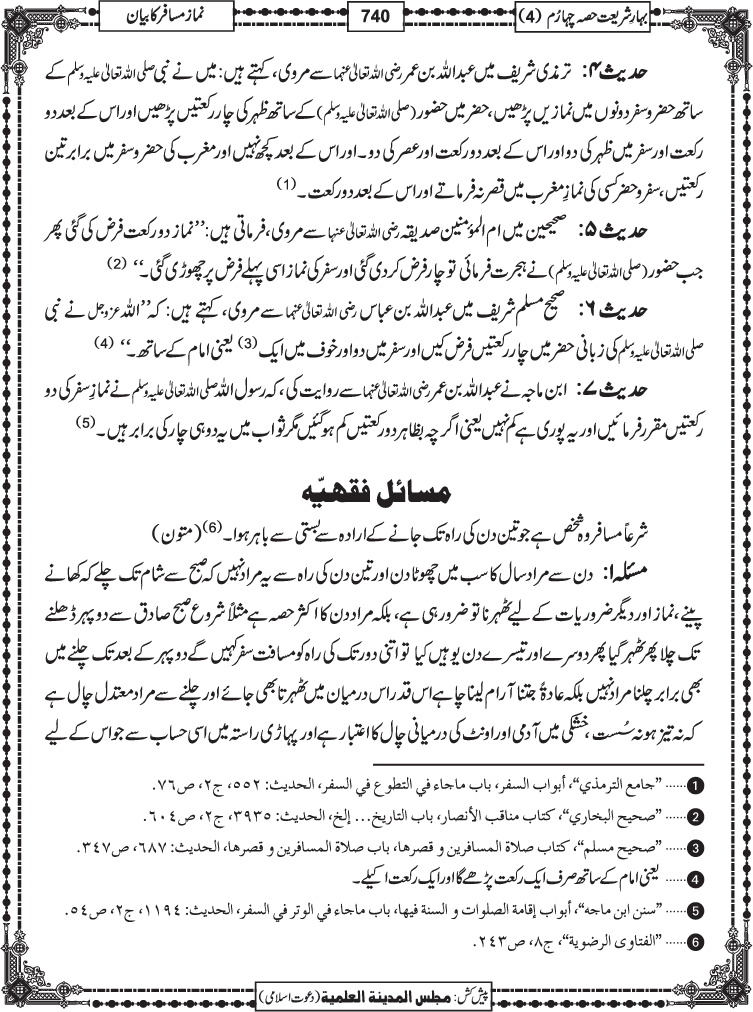 بہار شریعت حصہ چہارم (4)
740
نماز مسافر کا بیان
حدیث ۴: ترمذی شریف میں عبداللہ بن عمر رضی اللہ تعالیٰ عنہما سے مروی، کہتے ہیں: میں نے نبی صلی اللہ تعالیٰ علیہ وسلم کے
ساتھ حضر و سفر دونوں میں نمازیں پڑھیں، حضر میں حضور (صلی اللہ تعالیٰ علیہ وسلم) کے ساتھ ظہر کی چار رکعتیں پڑھیں اور اس کے بعد دو
رکعت اور سفر میں ظہر کی دو اور اس کے بعد دو رکعت اور عصر کی دو۔ اور اس کے بعد کچھ نہیں اور مغرب کی حضر و سفر میں برابر تین
رکعتیں، سفر و حضر کسی کی نمازِ مغرب میں قصر نہ فرماتے اور اس کے بعد دو رکعت۔ (1)
حدیث ۵: صحیحین میں ام المؤمنین صدیقہ رضی اللہ تعالیٰ عنہا سے مروی، فرماتی ہیں: ’’نماز دو رکعت فرض کی گئی پھر
جب حضور (صلی اللہ تعالیٰ علیہ وسلم) نے ہجرت فرمائی تو چار فرض کر دی گئی اور سفر کی نماز اسی پہلے فرض پر چھوڑی گئی۔‘‘ (2)
حدیث ۶: صحیح مسلم شریف میں عبداللہ بن عباس رضی اللہ تعالیٰ عنہما سے مروی، کہتے ہیں: کہ ’’اللہ عزوجل نے نبی
صلی اللہ تعالیٰ علیہ وسلم کی زبانی حضر میں چار رکعتیں فرض کیں اور سفر میں دو اور خوف میں ایک (3) یعنی امام کے ساتھ۔‘‘ (4)
حدیث ۷: ابن ماجہ نے عبداللہ بن عمر رضی اللہ تعالیٰ عنہما سے روایت کی، کہ رسول اللہ صلی اللہ تعالیٰ علیہ وسلم نے نمازِ سفر کی دو
رکعتیں مقرر فرمائیں اور یہ پوری ہے کم نہیں یعنی اگرچہ بظاہر دو رکعتیں کم ہوگئیں مگر ثواب میں یہ دو ہی چار کی برابر ہیں۔ (5)
مسائل فقھیّہ
شرعاً مسافر وہ شخص ہے جو تین دن کی راہ تک جانے کے ارادہ سے بستی سے باہر ہوا۔ (6) (متون)
مسئلہ ۱: دن سے مراد سال کا سب میں چھوٹا دن اور تین دن کی راہ سے یہ مراد نہیں کہ صبح سے شام تک چلے کہ کھانے
پینے، نماز اور دیگر ضروریات کے لیے ٹھہرنا تو ضرور ہی ہے، بلکہ مراد دن کا اکثر حصہ ہے مثلاً شروع صبح صادق سے دوپہر ڈھلنے
تک چلا پھر ٹھہر گیا پھر دوسرے اور تیسرے دن یوہیں کیا تو اتنی دور تک کی راہ کو مسافت سفر کہیں گے دوپہر کے بعد تک چلنے میں
بھی برابر چلنا مراد نہیں بلکہ عادۃً جتنا آرام لینا چاہیے اس قدر اس درمیان میں ٹھہرتا بھی جائے اور چلنے سے مراد معتدل چال ہے
کہ نہ تیز ہو نہ سُست، خشکی میں آدمی اور اونٹ کی درمیانی چال کا اعتبار ہے اور پہاڑی راستہ میں اسی حساب سے جو اس کے لیے
1 ...... ”جامع الترمذي“، أبواب السفر، باب ماجاء في التطوع في السفر، الحديث: ٥٥٢، ج٢، ص٧٦.
2 ...... ”صحيح البخاري“، كتاب مناقب الأنصار، باب التاريخ... إلخ، الحديث: ٣٩٣٥، ج٢، ص٦٠٤.
3 ...... ”صحيح مسلم“، كتاب صلاة المسافرين و قصرها، باب صلاة المسافرين و قصرها، الحديث: ٦٨٧، ص٣٤٧.
4 ...... یعنی امام کے ساتھ صرف ایک رکعت پڑھے گا اور ایک رکعت اکیلے۔
5 ...... ”سنن ابن ماجه“، أبواب إقامة الصلوات و السنة فيها، باب ماجاء في الوتر في السفر، الحديث: ١١٩٤، ج٢، ص٥٤.
6 ...... ”الفتاوى الرضوية“، ج٨، ص٢٤٣.
پیش کش: مجلس المدينة العلمية (دعوت اسلامی)